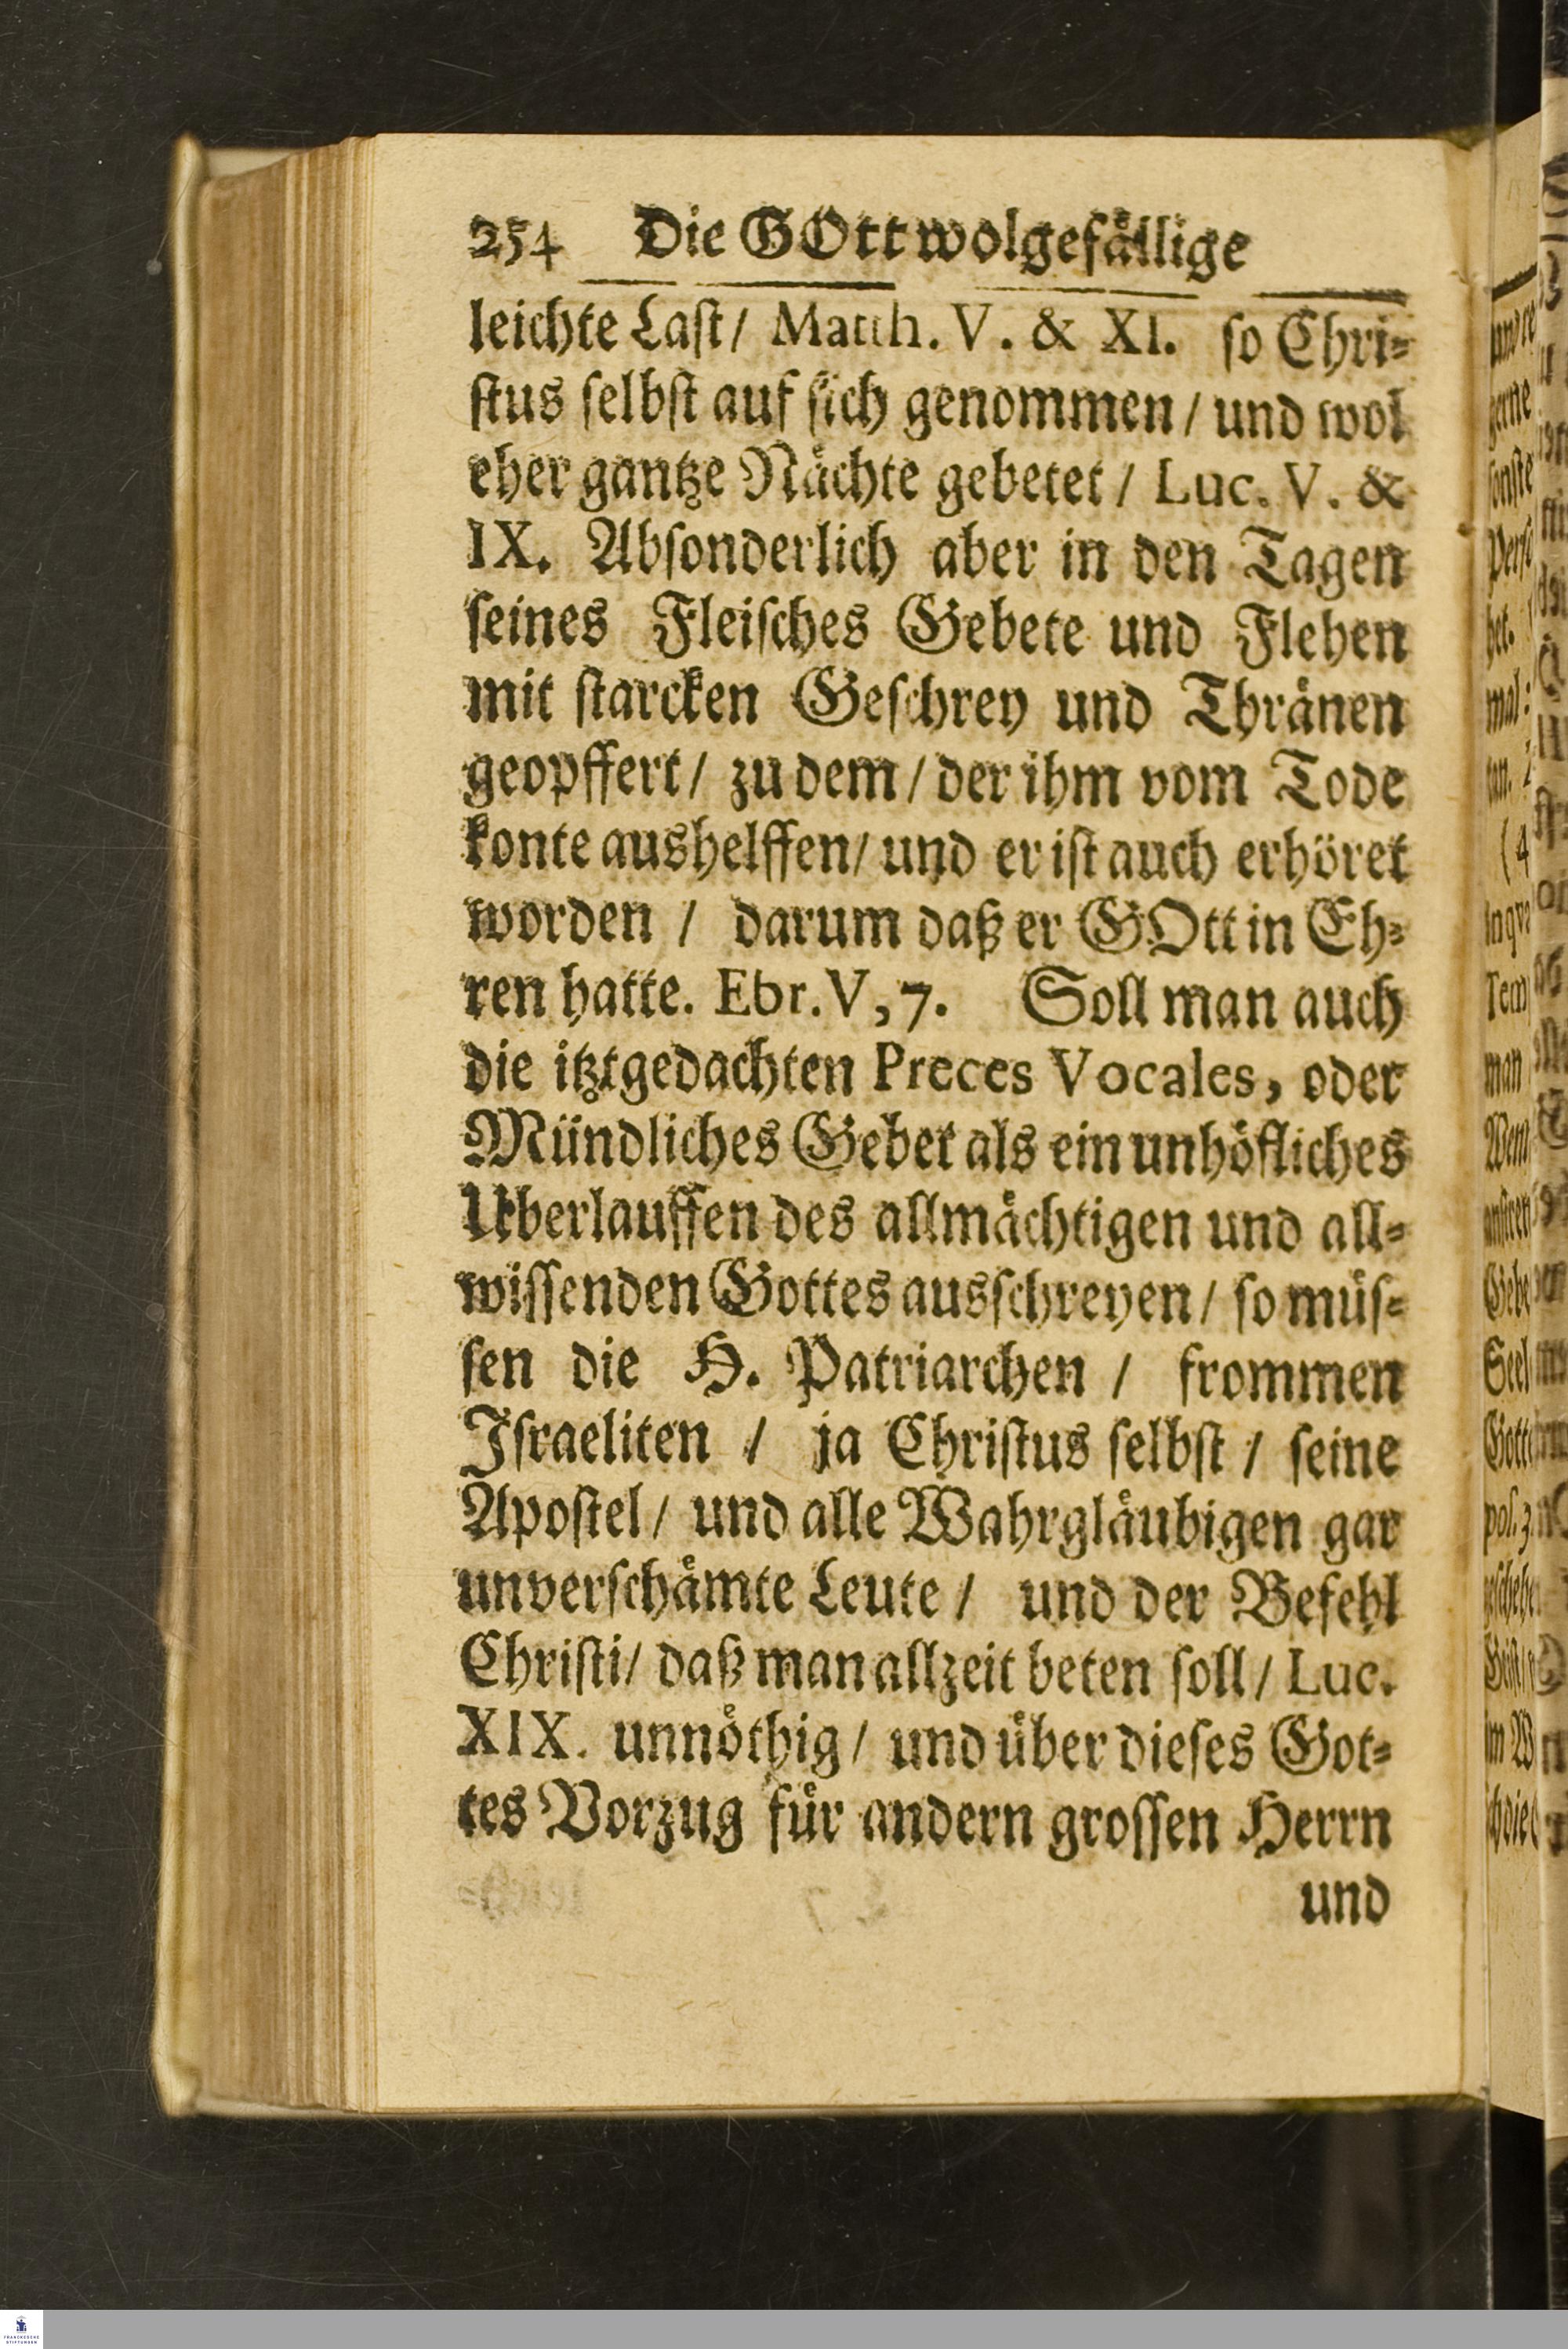 254 Die GOtt wolgefällige
leichte Last/ Matth. V. & XI. so Chri-
stus selbst auf sich genommen / und wol
eher gantze Nächte gebetet / Luc. V. &
IX. Absonderlich aber in den Tagen
seines Fleisches Gebete und Flehen
mit starcken Geschrey und Thränen
geopffert / zu dem / der ihm vom Tode
konte aushelffen/ und er ist auch erhöret
worden / darum daß er GOtt in Eh-
ren hatte. Ebr. V, 7. Soll man auch
die itztgedachten Preces Vocales, oder
Mündliches Gebet als ein unhöfliches
Uberlauffen des allmächtigen und all-
wissenden Gottes ausschreyen / so müs-
sen die H. Patriarchen / frommen
Israeliten / ja Christus selbst / seine
Apostel / und alle Wahrgläubigen gar
unverschämte Leute / und der Befehl
Christi/ daß man allzeit beten soll / Luc.
XIX. unnöthig / und über dieses Got-
tes Vorzug für andern grossen Herrn
und
FRANCKESCHE
STIFTUNGEN